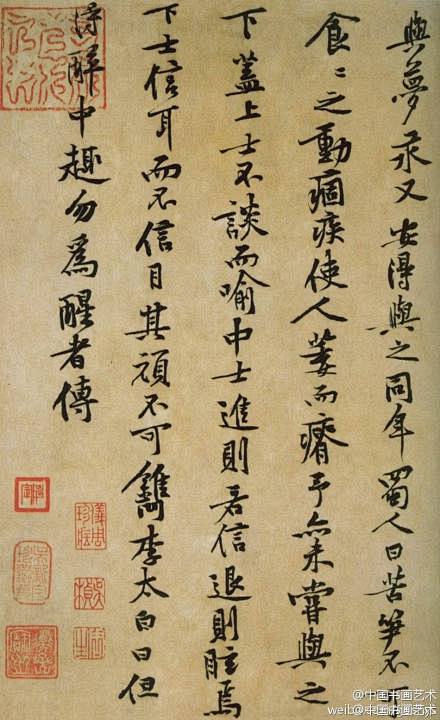 與夢永又安得與之同年蜀人曰苦笋不
食〻之動痼疾使人萎而瘠予亦未嘗與之
下蓋上士不談而喻中士進則若信退則眩焉
下士信耳而不信目其頑不可鐫李太白曰但
得醉中趣勿爲醒者傳
@中国书画艺术
weib@中国书画艺术